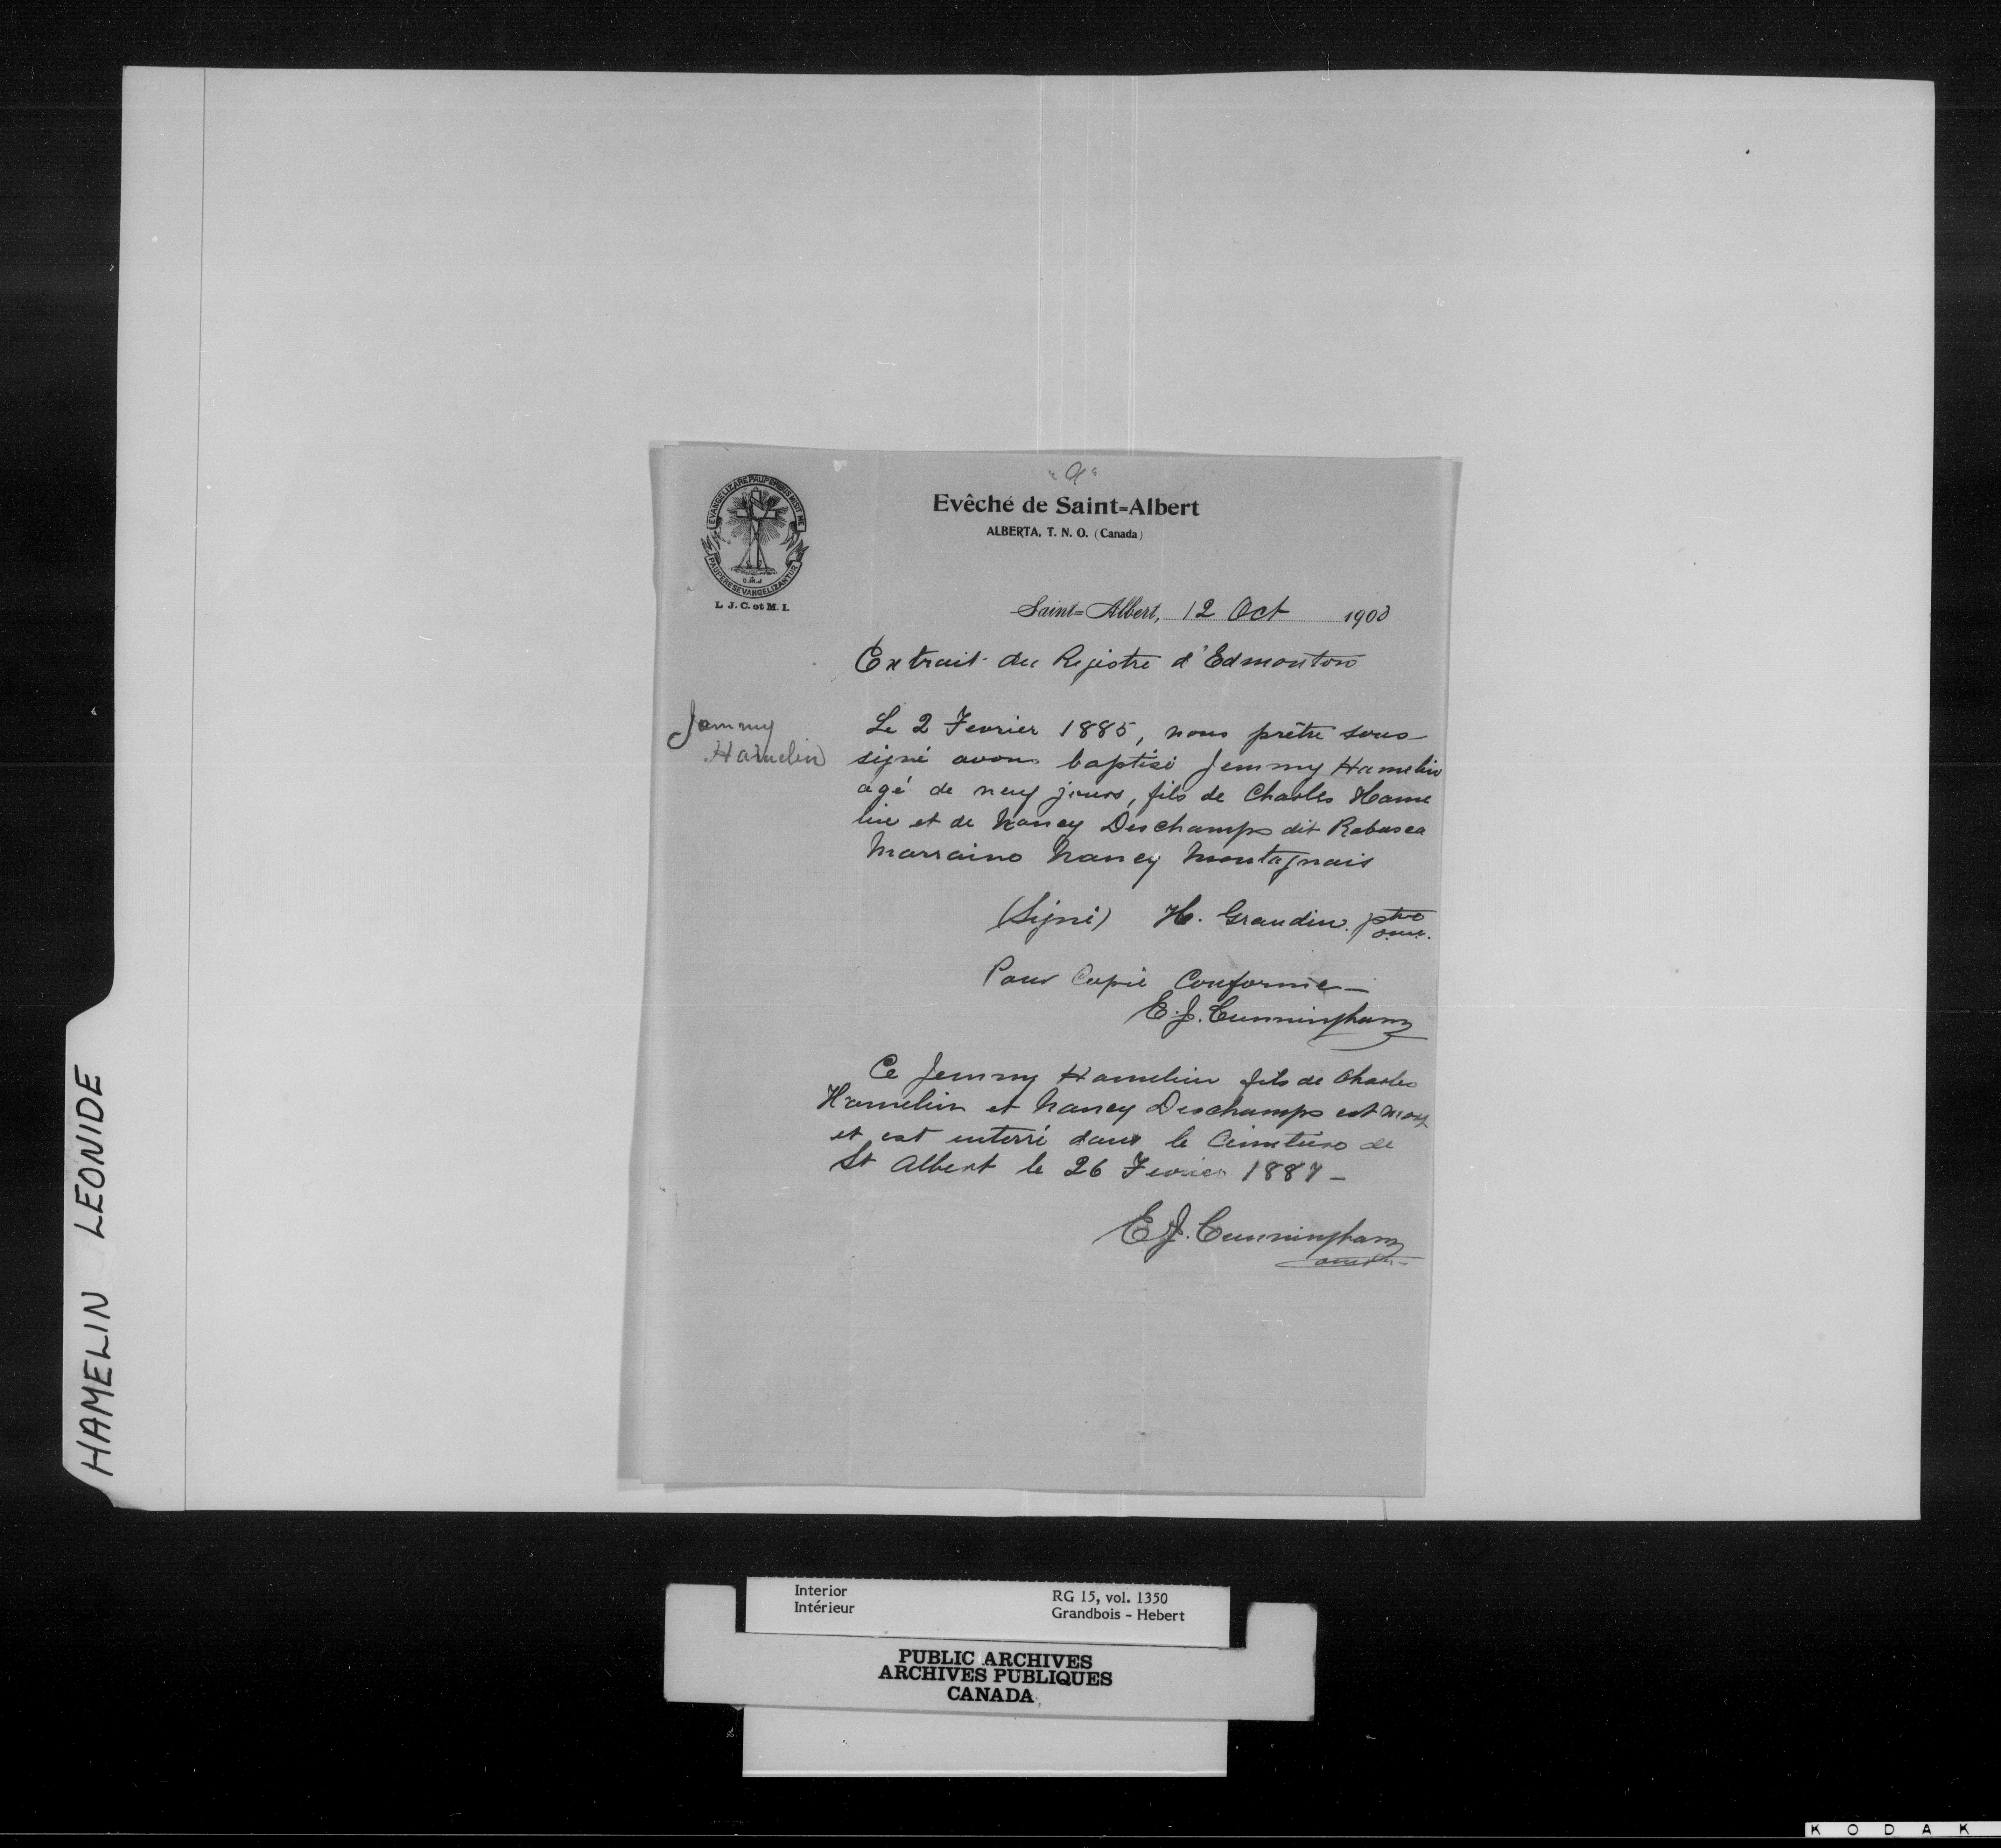 "A"
EVANGELIZARE PAUPERIBUS MISIT ME
PAUPERES EVANGELIZANTUR
O.M.I
L. J. C. et M. I.
Evêché de Saint=Albert
ALBERTA, T. N. O. (Canada)
Saint=Albert, 12 Oct 1900
Extrait du Registre d'Edmonton
Jemmy
Hamelin
Le 2 Fevrier 1885, nous prêtre sous
signé avons baptisé Jemmy Hamelin
agé de neuf jours, fils de Charles Hame
lin et de Nancy Deschamps dit Rabasca
Marraine Nancy Montagnais
(Signé) H. Grandin. ptre
o.m.i.
Pour Copie Conforme —
E. J. Cunningham
Ce Jemmy Hamelin fils de Charles
Hamelin et Nancy Deschamps est mort
et est enterré dans le Cimetière de
St Albert le 26 Fevrier 1887 —
E J. Cunningham
HAMELIN LEONIDE
Interior
Intérieur
RG 15, vol. 1350
Grandbois - Hebert
PUBLIC ARCHIVES
ARCHIVES PUBLIQUES
CANADA
KODAK